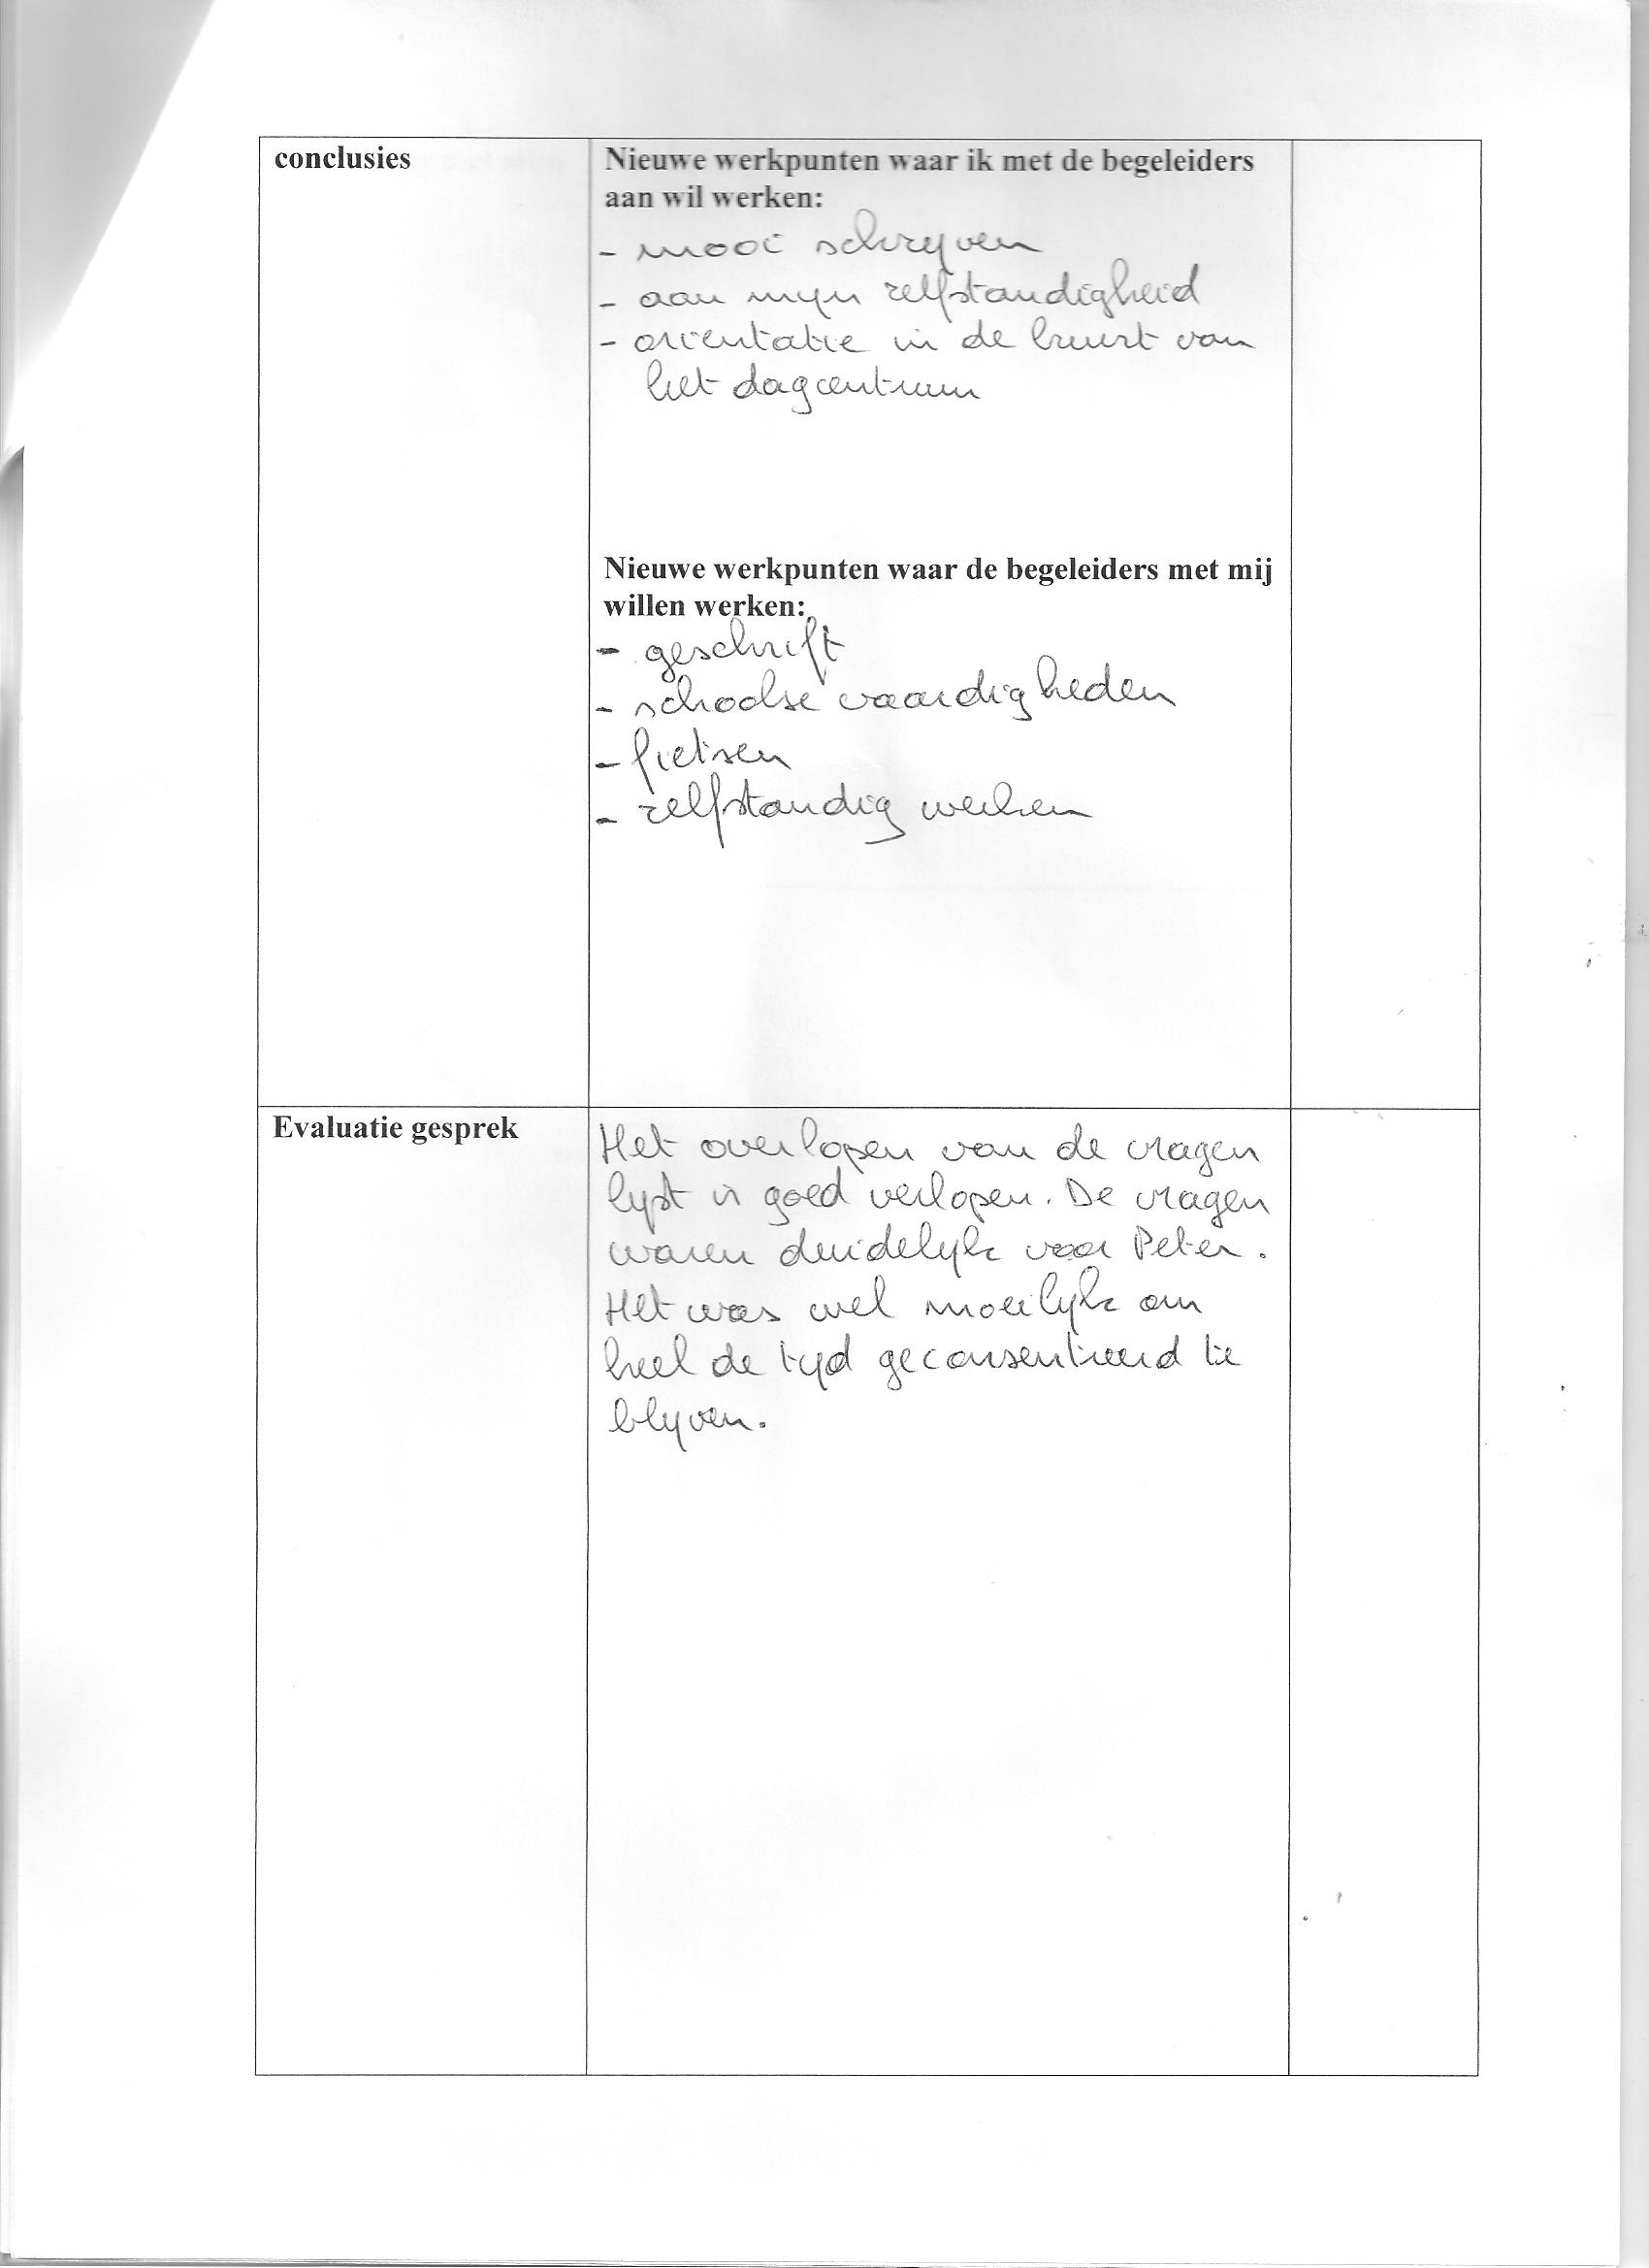 conclusies
Nieuwe werkpunten waar ik met de begeleiders
aan wil werken:
- mooi schrijven
- aan mijn zelfstandigheid
- orientatie in de buurt van
het dagcentrum
Nieuwe werkpunten waar de begeleiders met mij
willen werken:
- geschrift
- schoolse vaardigheden
- fietsen
- zelfstandig werken
Evaluatie gesprek
Het overlopen van de vragen
lijst is goed verlopen. De vragen
waren duidelijk voor Peter.
Het was wel moeilijk om
heel de tijd geconsentreerd te
blijven.